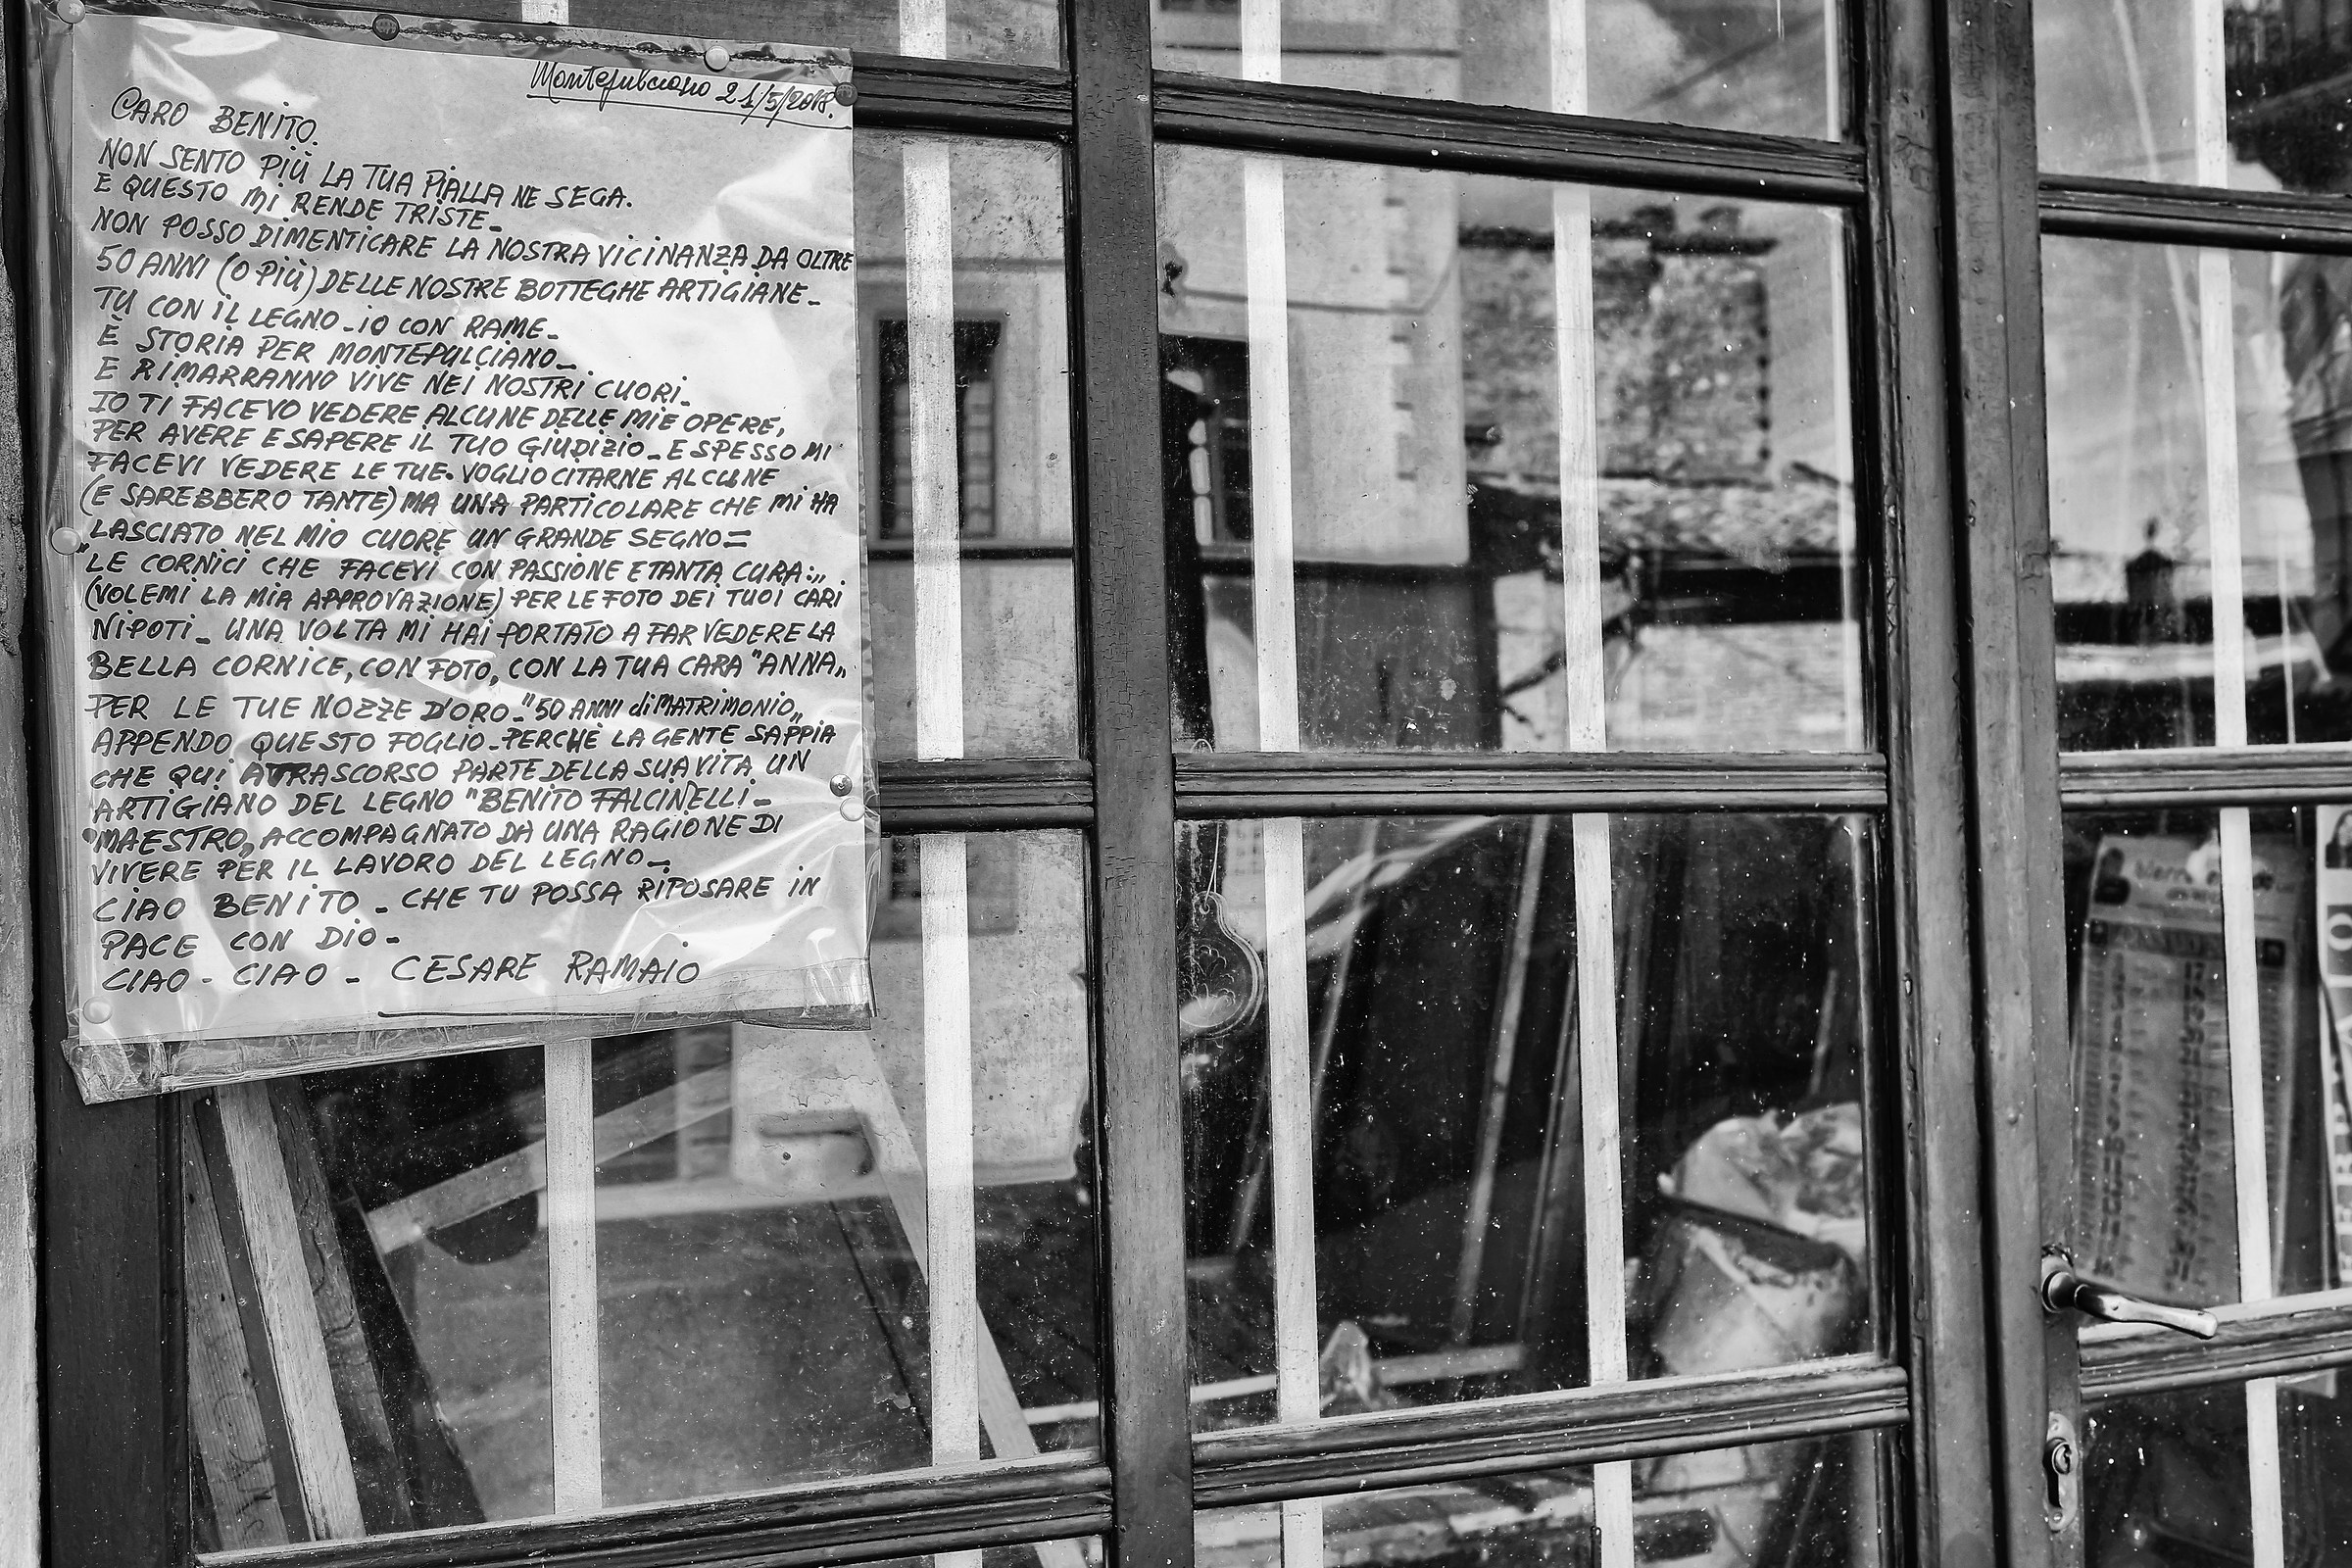 Montepulciano 21/5/2018.
CARO BENITO.
NON SENTO PIÙ LA TUA PIALLA NE SEGA.
E QUESTO MI RENDE TRISTE_
NON POSSO DIMENTICARE LA NOSTRA VICINANZA DA OLTRE
50 ANNI (O PIÙ) DELLE NOSTRE BOTTEGHE ARTIGIANE_
TU CON IL LEGNO_IO CON RAME_
E STORIA PER MONTEPULCIANO_
E RIMARRANNO VIVE NEI NOSTRI CUORI_
IO TI FACEVO VEDERE ALCUNE DELLE MIE OPERE,
PER AVERE E SAPERE IL TUO GIUDIZIO_E SPESSO MI
FACEVI VEDERE LE TUE. VOGLIO CITARNE ALCUNE
(E SAREBBERO TANTE) MA UNA PARTICOLARE CHE MI HA
LASCIATO NEL MIO CUORE UN GRANDE SEGNO=
"LE CORNICI CHE FACEVI CON PASSIONE E TANTA CURA:„
(VOLEMI LA MIA APPROVAZIONE) PER LE FOTO DEI TUOI CARI
NIPOTI_ UNA VOLTA MI HAI PORTATO A FAR VEDERE LA
BELLA CORNICE, CON FOTO, CON LA TUA CARA "ANNA„
PER LE TUE NOZZE D'ORO_"50 ANNI di MATRIMONIO„
APPENDO QUESTO FOGLIO_PERCHÈ LA GENTE SAPPIA
CHE QUI A TRASCORSO PARTE DELLA SUA VITA UN
ARTIGIANO DEL LEGNO "BENITO FALCINELLI_
"MAESTRO„ ACCOMPAGNATO DA UNA RAGIONE DI
VIVERE PER IL LAVORO DEL LEGNO_
CIAO BENITO_CHE TU POSSA RIPOSARE IN
PACE CON DIO_
CIAO - CIAO - CESARE RAMAIO